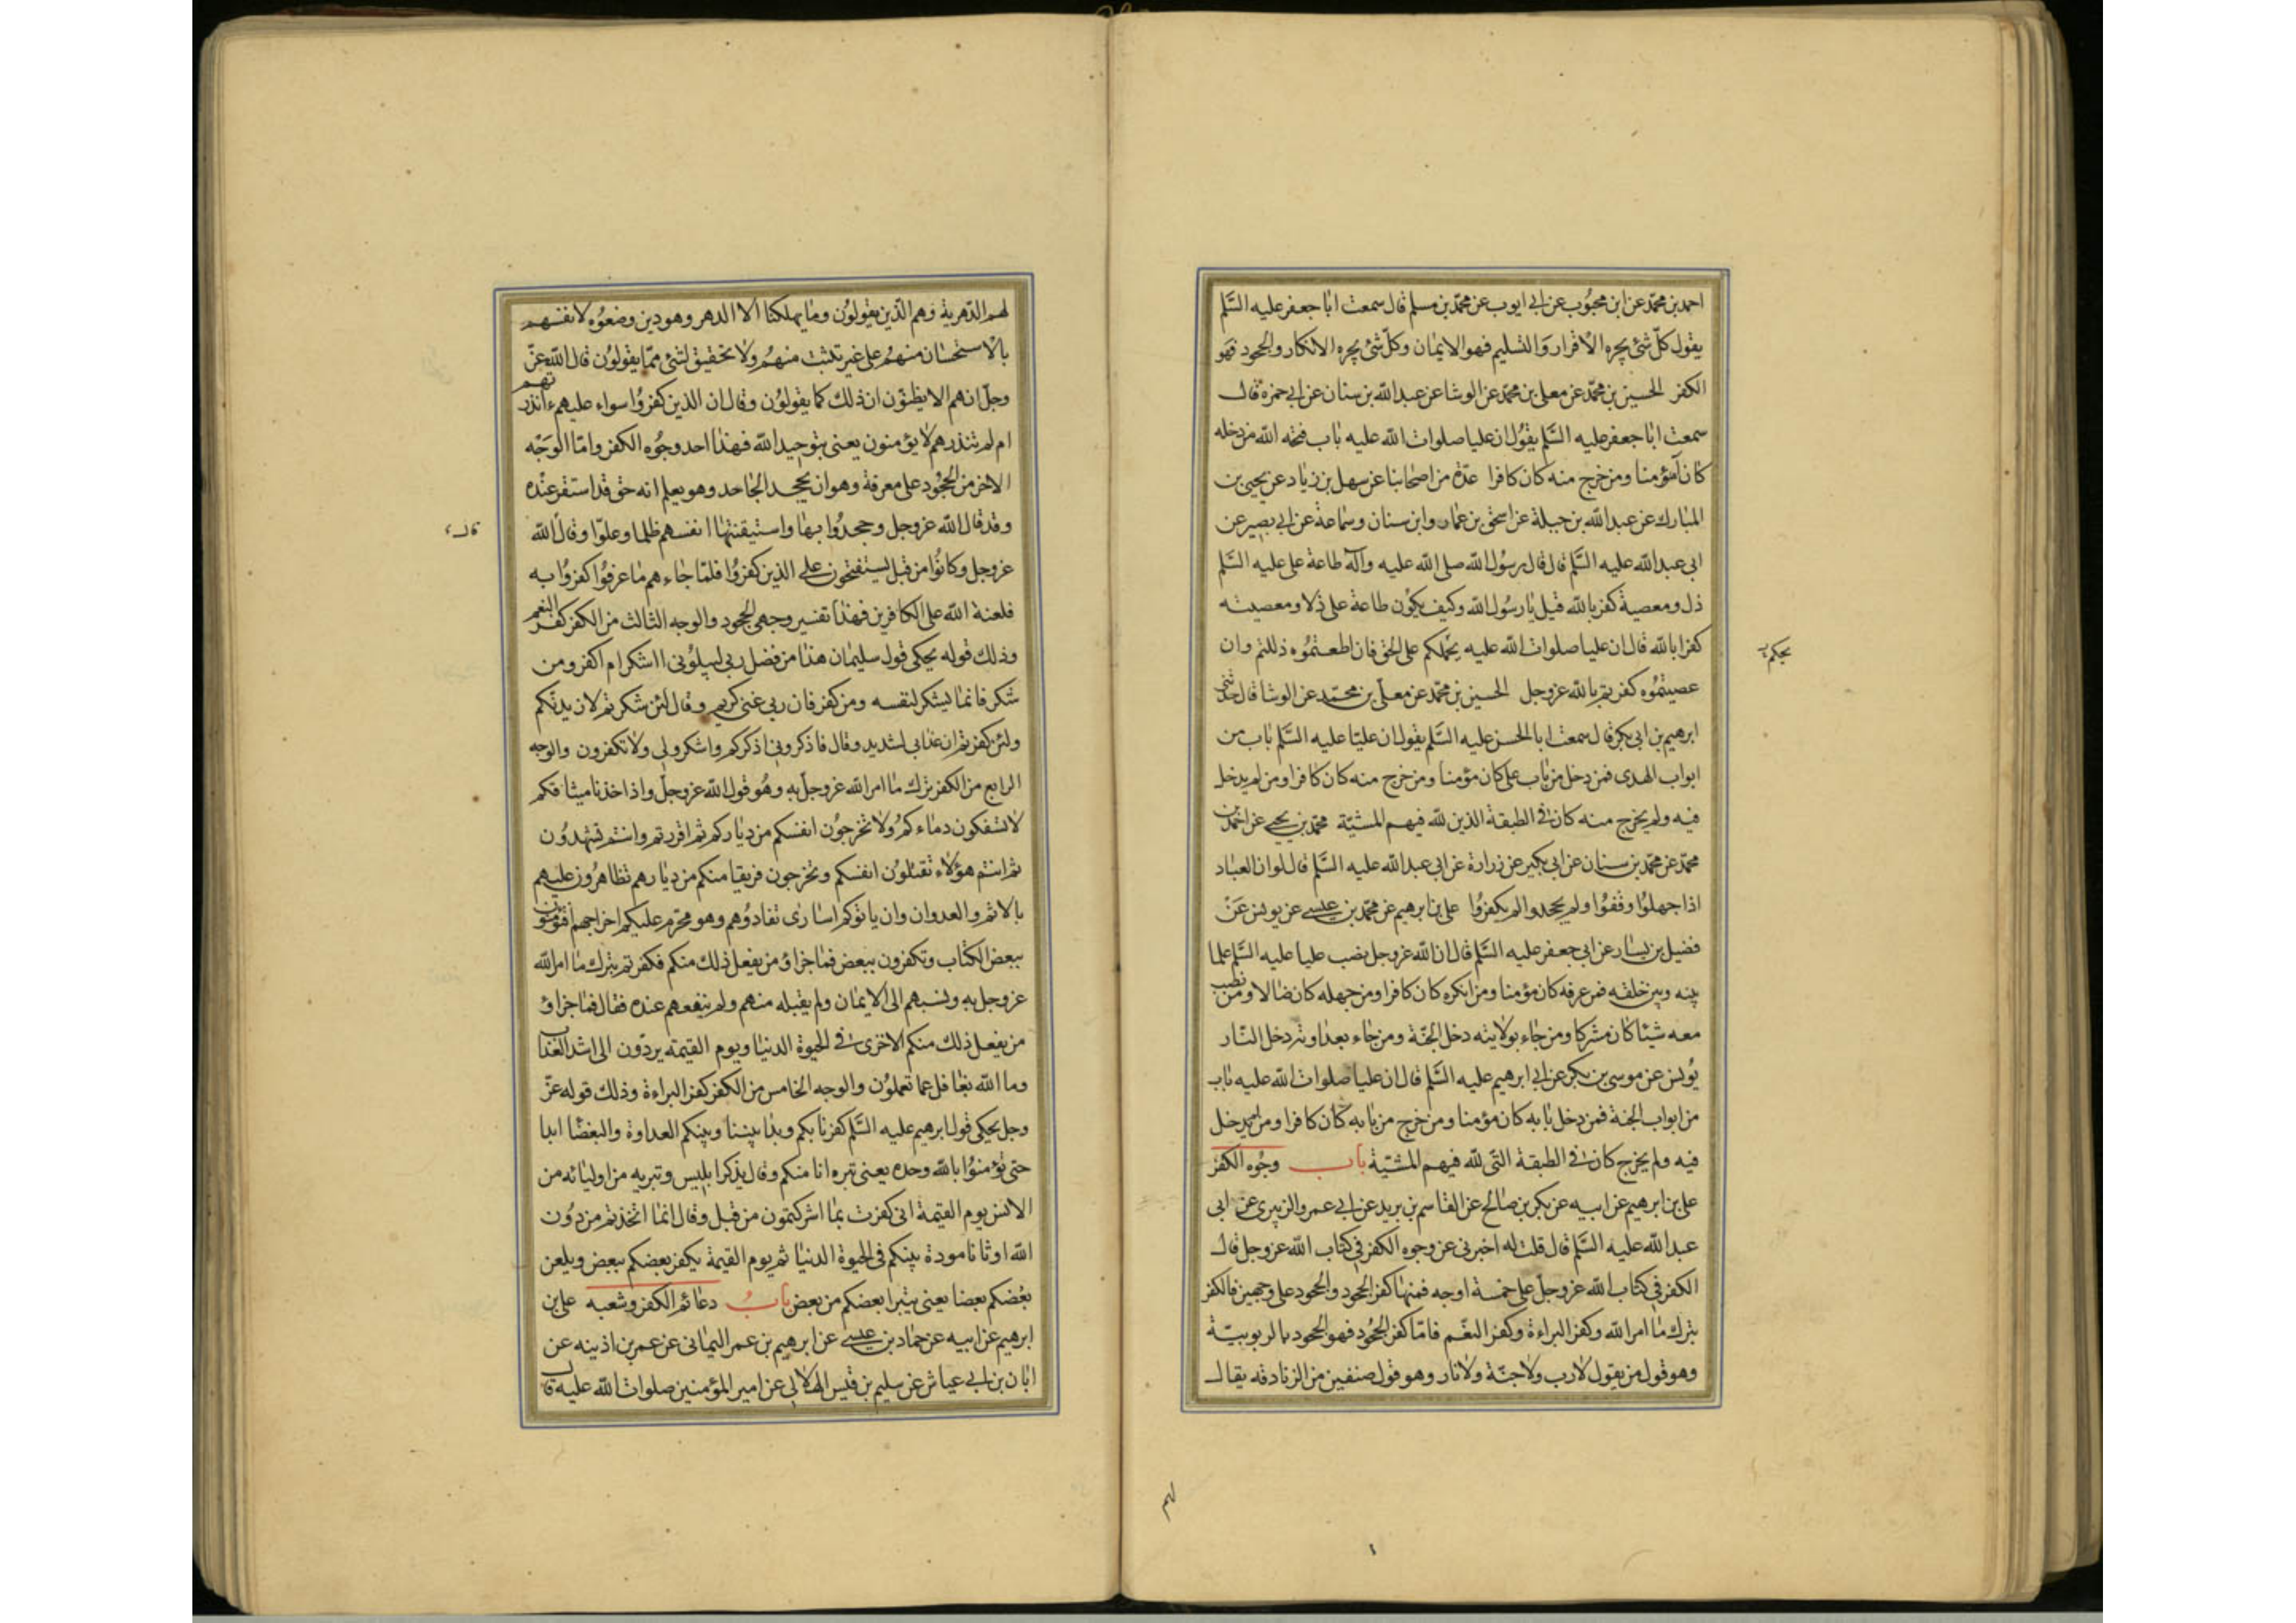 احمد بن محمّد عن ابن محبُوب عن ابى ايوب عن محمّد بن مسلم قال سمعت ابا جعفر عليه السَّلم
يقول كلّ شئ يجره الاقرار وَالتسليم فهو الايمٰان وكلّ شئ يجره الانكار والجحود فهو
الكفر الحسين بن محمّد عن معلى بن محمّد عن الوشا عن عبد الله بن سنان عن ابى حمزة قال
سمعت ابا جعفر عليه السَّلم يقوُل ان عليا صلوات الله عليه باب فتحه الله من دخله
كان مؤمنا ومن خرج منه كان كافرا عدّة من اصحابنا عن سهل بن زياد عن يحيى بن
المبارك عن عبد الله بن جبلة عن اسحق بن عمار وابن سنان وسماعة عن ابى بصير عن
ابى عبد الله عليه السَّلم قال قال رسُول الله صلى الله عليه وآله طاعة على عليه السَّلم
ذل ومعصية كفر بالله قيل يا رسُول الله وكيف يكوُن طاعة على ذلا ومعصيته
كفرا بالله قال ان عليا صلوات الله عليه يحملكم على الحق فان اطعتموُه ذللتم وان
يحكم
عصيتموُه كفرتم بالله عزوجل الحسين بن محمّد عن معلّى بن محمّد عن الوشا قال حدّثنى
ابرهيم بن ابى بكر قال سمعت ابا الحسن عليه السَّلم يقول ان عليّا عليه السَّلم باب من
ابواب الهدى فمن دخل من باب على كان مؤمنا ومن خرج منه كان كافرا ومن لم يدخل
فيه ولم يخرج منه كان فى الطبقة الذين لله فيهم المشيّة محمّد بن يحيى عن احمد بن
محمّد عن محمّد بن سنان عن ابى بكير عن زرارة عن ابى عبد الله عليه السَّلم قال لو ان العباد
اذا جهلوُا وقفوُا ولم يجحدوا لم يكفروُا على بن ابرهيم عن محمّد بن عيسى عن يونس عَن
فضيل بن يسار عن ابى جعفر عليه السَّلم قال ان الله عزوجل نصب عليا عليه السَّلم علما
بينه وبين خلقه فمن عرفه كان مؤمنا ومن انكره كان كافرا ومن جهله كان ضالا ومن نصب
معه شيئا كان مشركا ومن جاء بولايته دخل الجنّة ومن جاء بعداوته دخل النّار
يوُنس عن موسى بن بكر عن ابى ابرهيم عليه السَّلم قال ان عليا صلوات الله عليه باب
من ابواب الجنة فمن دخل بابه كان مؤمنا ومن خرج من بابه كان كافرا ومن لم يدخل
فيه ولم يخرج كان فى الطبقة التى لله فيهم المشيّة باب وجوُه الكفر
على بن ابرهيم عن ابيه عن بكر بن صالح عن القاسم بن بريد عن ابى عمرو الزبيرى عن ابى
عبد الله عليه السَّلم قال قلت له اخبرنى عن وجوه الكفر فى كتاب الله عزوجل قال
الكفر فى كتاب الله عزوجلّ على خمسة اوجه فمنها كفر الجحود والجحود على وجهين فالكفر
بترك ما امر الله وكفر البراءة وكفر النعّم فامّا كفر الجحوُد فهو الجحود بالربوبيّة
وهو قول من يقول لا رب ولا جنّة ولا نار وهو قول صنفين من الزنادقه يقال
لهم الدّهرية وَهم الّذين يقولوُن وما يهلكنا الّا الدهر وهو دين وضعوُه لانفسهم
بالاستحسان منهُم على غير تثبت منهُم ولا تحقيق لشئ ممّا يقولوُن قال الله عزّ
وجلّ ان هم الا يظنّون ان ذلك كما يقولوُن وقال ان الذين كفروُا سواء عليهم ءانذرتهم
ام لم تنذرهم لا يؤمنون يعنى بتوحيد الله فهذا احد وجوُه الكفر وامّا الوَجْه
الاخر من الجحوُد على معرفة وهو ان يجحد الجاحد وهو يعلم انه حق قد استقر عنْده
وقد قال الله عزوجل وجحدوُا بها واستيقنتها انفسهم ظلما وعلوّا وقال الله
قال
عزوجل وكانوُا من قبل يستفتحون على الذين كفروُا فلمّا جاءهم ما عرفوُا كفروُا به
فلعنة الله على الكافرين فهذا تفسير وجهى الجحود والوجه الثالث من الكفر كفر النعم
وذلك قوله يحكى قول سليمان هذا من فضل ربى ليبلوُنى ااشكر ام اكفر ومن
شكر فانما يشكر لنفسه ومن كفر فان ربى غنى كريم وقال لئن شكرتم لازيدنّكم
ولئن كفرتم ان عذابى لشديد وقال فاذكرونى اذكركم واشكروا لى ولا تكفرون والوجه
الرابع من الكفر ترك ما امر الله عزوجلّ به وهُو قول الله عزوجلّ واذ اخذنا ميثاقكم
لا تسفكون دماءكمُ ولا تخرجوُن انفسكم من دياركم ثم اقررتم وانتم تشهدوُن
ثم انتم هؤلاء تقتلوُن انفسكم وتخرجون فريقا منكم من ديارهم تظاهروُن عليهم
بالاثم والعدوان وان ياتوكم اسارى تفادوُهم وهو محرّم عليكم اخراجهم أفتؤمنون
ببعض الكتاب وتكفرون ببعض فما جزاؤ من يفعل ذلك منكم فكفرتم بترك ما امر الله
عزوجل به ونسبهم الى الايمان ولم يقبله منهم ولم ينفعهم عنده فقال فما جزاؤ
من يفعل ذلك منكم الا خزى فى الحيوة الدنيا ويوم القيمته يردّون الى اشد العذاب
وما الله بغافل عما تعملوُن والوجه الخامس من الكفر كفر البراءة وذلك قوله عزّ
وجل يحكى قول ابرهيم عليه السَّلم كفرنا بكم وبدا بيننا وبينكم العداوة والبغضا ابدا
حتى تؤمنوُا بالله وحده يعنى تبره انا منكم وقال يذكر ابليس وتبريه من اوليائه من
الانس يوم القيمة انى كفرت بما اشركتمون من قبل وقال انما اتخذتم من دوُن
الله اوثانا مودة بينكم فى الحيوة الدنيا ثم يوم القيمة يكفر بعضكم ببعض ويلعن
بعْضكم بعضا يعنى يتبرا بعضكم من بعض بابُ دعائم الكفر وشعبه على بن
ابرهيم عن ابيه عن حمّاد بن عيسى عن ابرهيم بن عمر اليمانى عن عمر بن اذينه عن
ابان بن ابى عياش عن سليم بن قيس الهلالى عن امير المؤمنين صلوات الله عليه قال